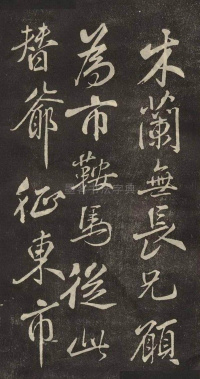 木蘭無長兄願
為市鞍馬從此
替爺征東市